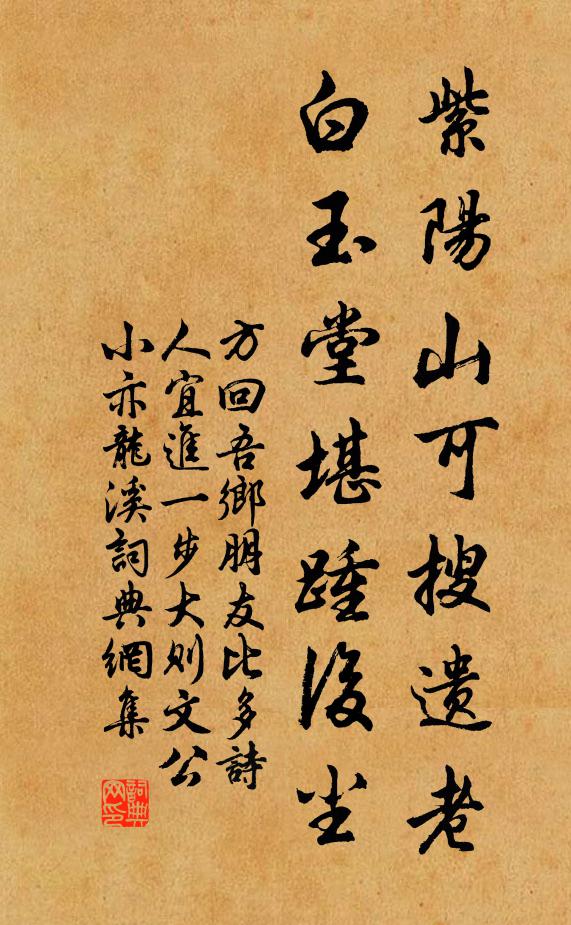 紫陽山可搜遺老
白玉堂堪踵後塵
方回吾鄉朋友比多詩
人宜進一步大則文公
小亦龍溪詞典網集
詞典
网印